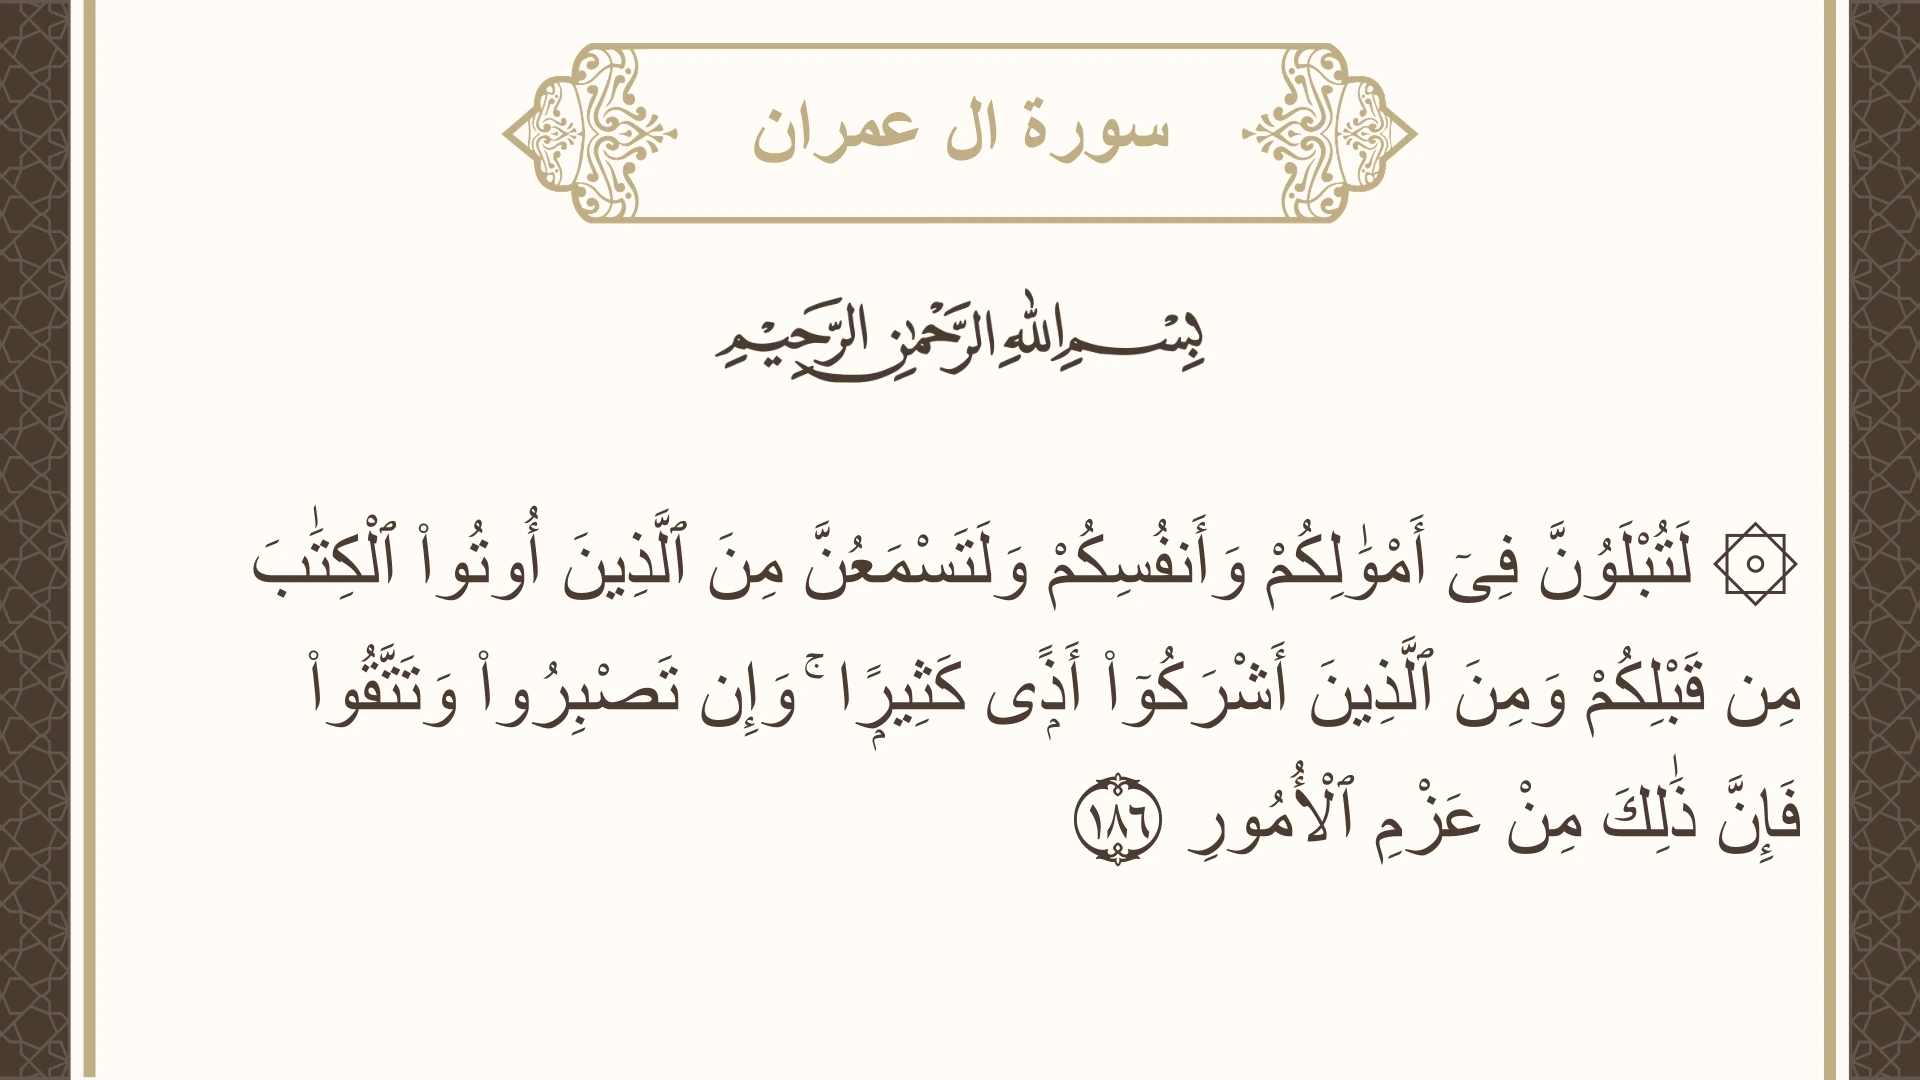 سورة ال عمران
بِسْمِ اللهِ الرَّحْمٰنِ الرَّحِيْمِ
۞ لَتُبْلَوُنَّ فِىٓ أَمْوَٰلِكُمْ وَأَنفُسِكُمْ وَلَتَسْمَعُنَّ مِنَ ٱلَّذِينَ أُوتُوا۟ ٱلْكِتَٰبَ
مِن قَبْلِكُمْ وَمِنَ ٱلَّذِينَ أَشْرَكُوٓا۟ أَذًۭى كَثِيرًۭا ۚ وَإِن تَصْبِرُوا۟ وَتَتَّقُوا۟
فَإِنَّ ذَٰلِكَ مِنْ عَزْمِ ٱلْأُمُورِ ١٨٦